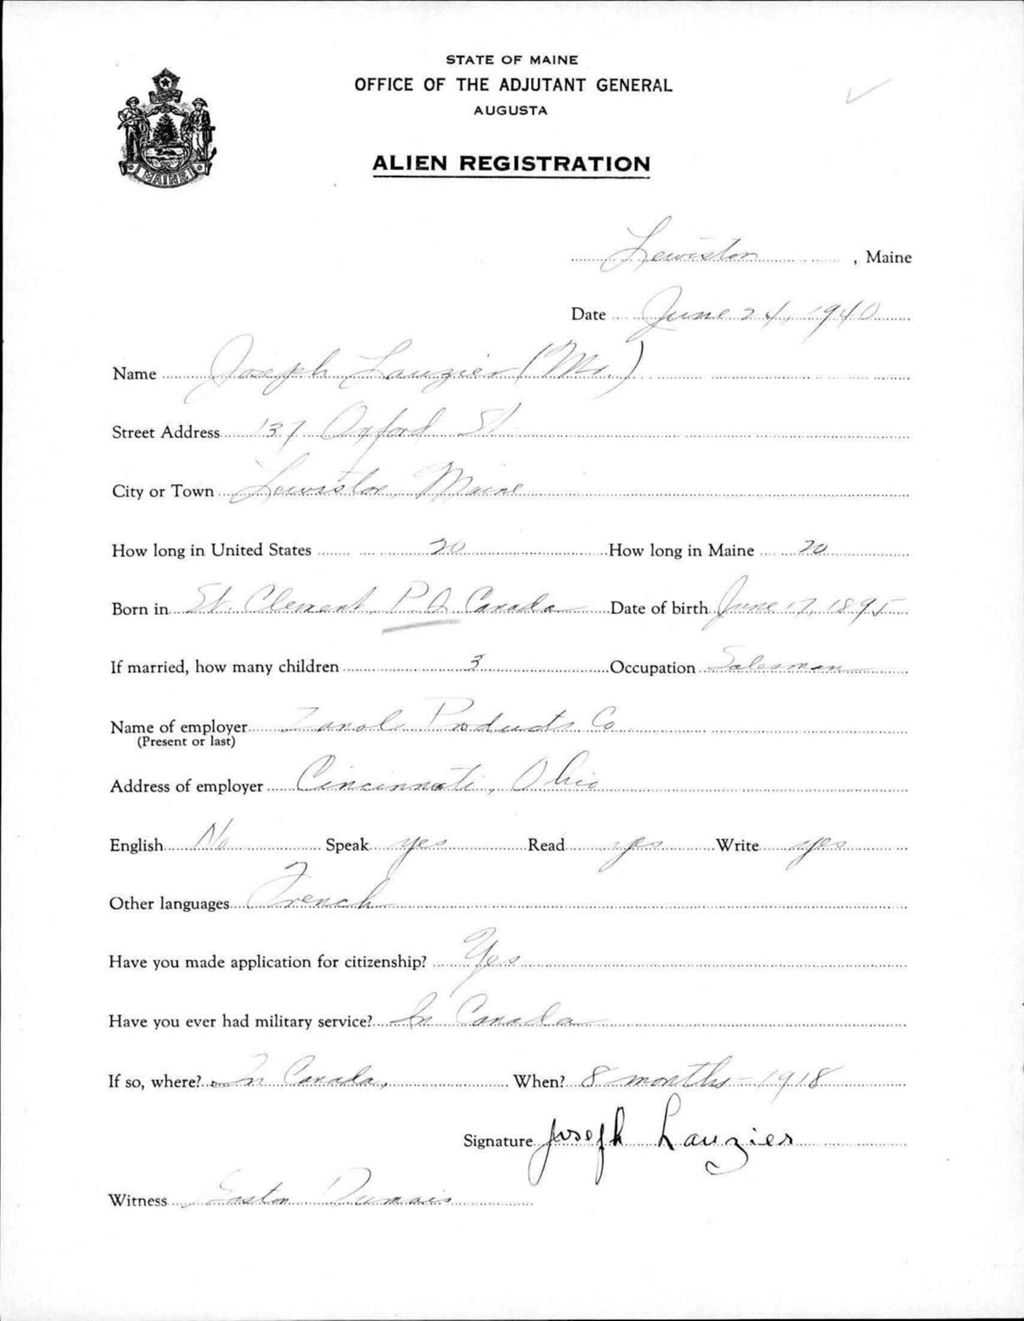 STATE OF MAINE
OFFICE OF THE ADJUTANT GENERAL
AUGUSTA
MAINE
ALIEN REGISTRATION
Lewiston, Maine
Date June 24, 1940
Name Joseph Lauzier (Mr.)
Street Address 137 Oxford St
City or Town Lewiston, Maine
How long in United States 20 How long in Maine 20
Born in St. Clement P.Q. Canada Date of birth June 17, 1895
If married, how many children 3 Occupation Salesman
Name of employer Zanol Products Co
(Present or last)
Address of employer Cincinnati, Ohio
English No Speak yes Read yes Write yes
Other languages French
Have you made application for citizenship? Yes
Have you ever had military service? In Canada
If so, where? In Canada, When? 8 months - 1918
Signature Joseph Lauzier
Witness Dumais